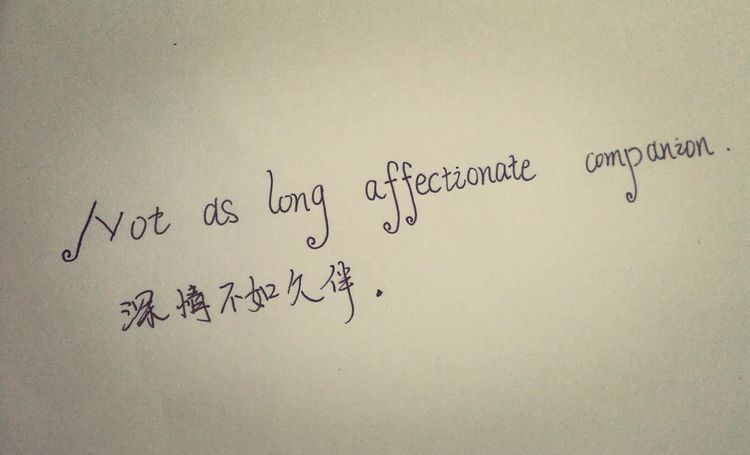 Not as long affectionate companion.
深情不如久伴.